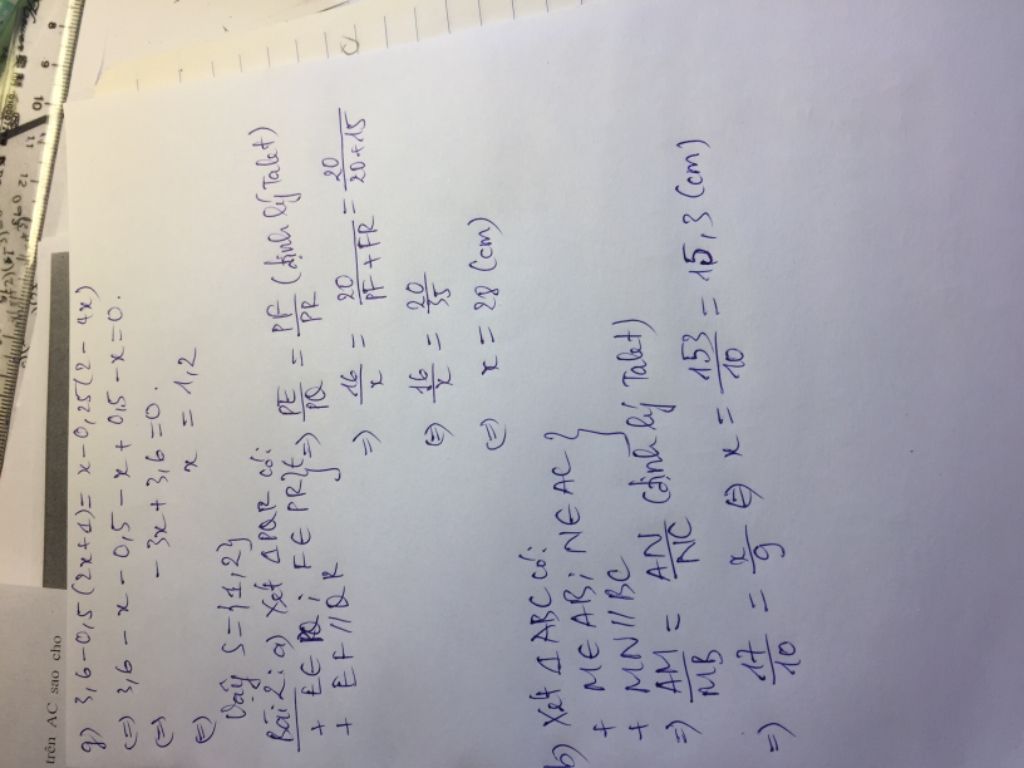 trên AC sao cho
g) 3,6 - 0,5 (2x+1) = x - 0,25 (2 - 4x)
(=) 3,6 - x - 0,5 - x + 0,5 - x = 0.
(=) - 3x + 3,6 = 0.
(=) x = 1,2
Vây S = {1,2}
Bài 2: a) Xét Δ PQR có:
+ E ∈ PQ ; F ∈ PR } => PE/PQ = PF/PR (định lý Talet)
+ EF // QR
=) 16/x = 20/PF + FR = 20/20+15
(=) 16/x = 20/35
(=) x = 28 (cm)
b) Xét Δ ABC có:
+ M ∈ AB; N ∈ AC }
+ MN // BC
=) AM/MB = AN/NC (định lý Talet)
=) 17/10 = x/9 (=) x = 153/10 = 15,3 (cm)
8 9 10 11 12